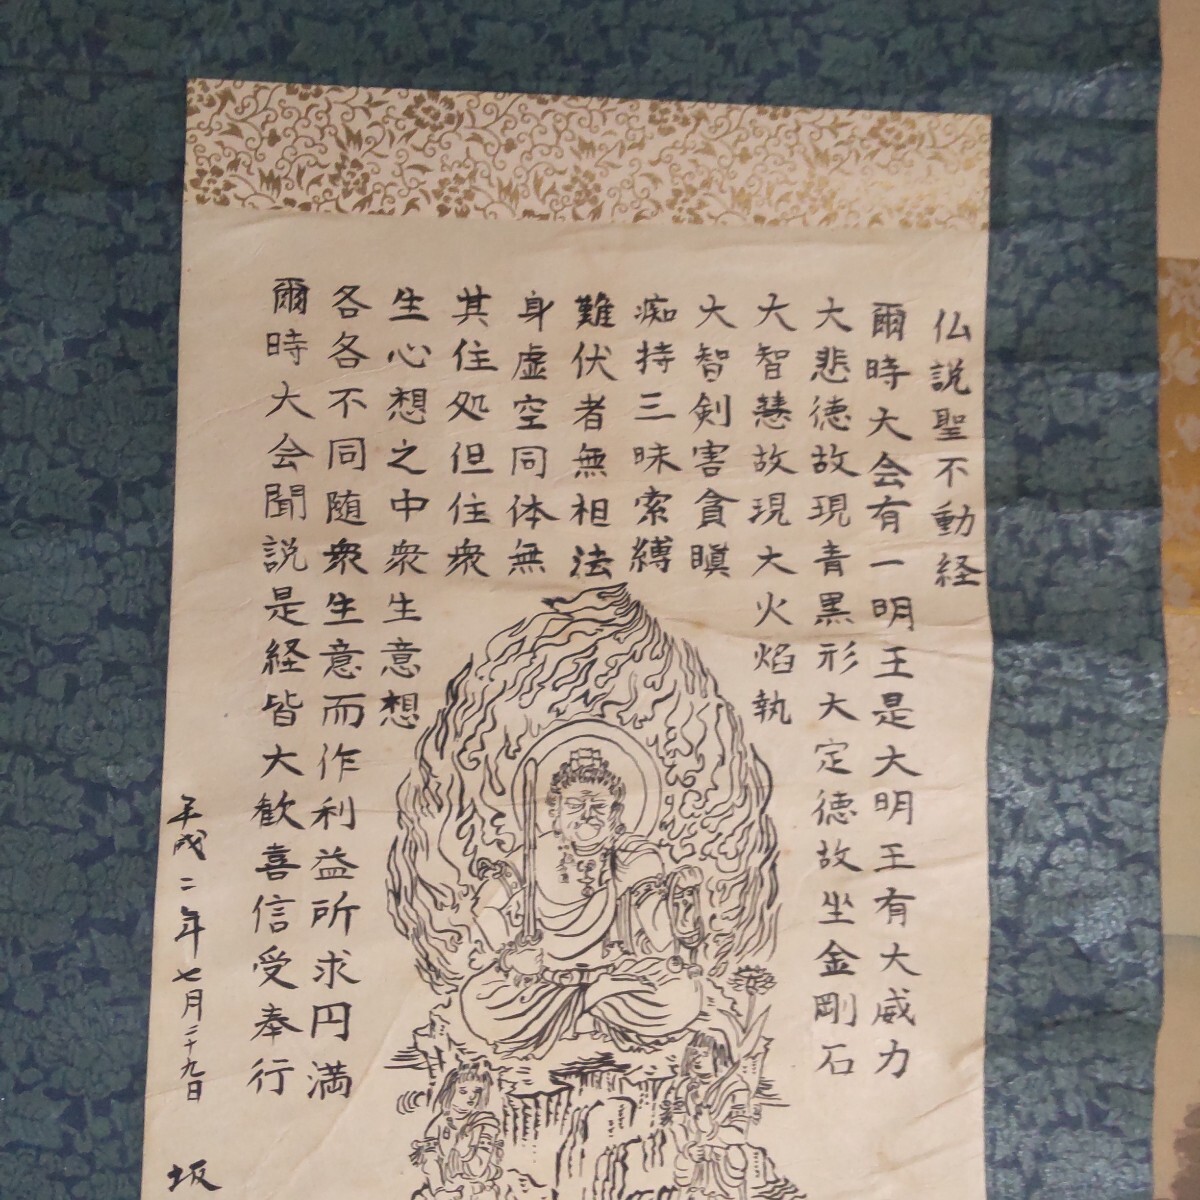 仏説聖不動経
爾時大会有一明王是大明王有大威力
大悲徳故現青黒形大定徳故坐金剛石
大智慧故現大火焰執
大智剣害貪瞋
痴持三昧索縛
難伏者無相法
身虚空同体無
其住処但住衆
生心想之中衆生意想
各各不同随衆生意而作利益所求円満
爾時大会聞説是経皆大歓喜信受奉行
平成二年七月二十九日
坂